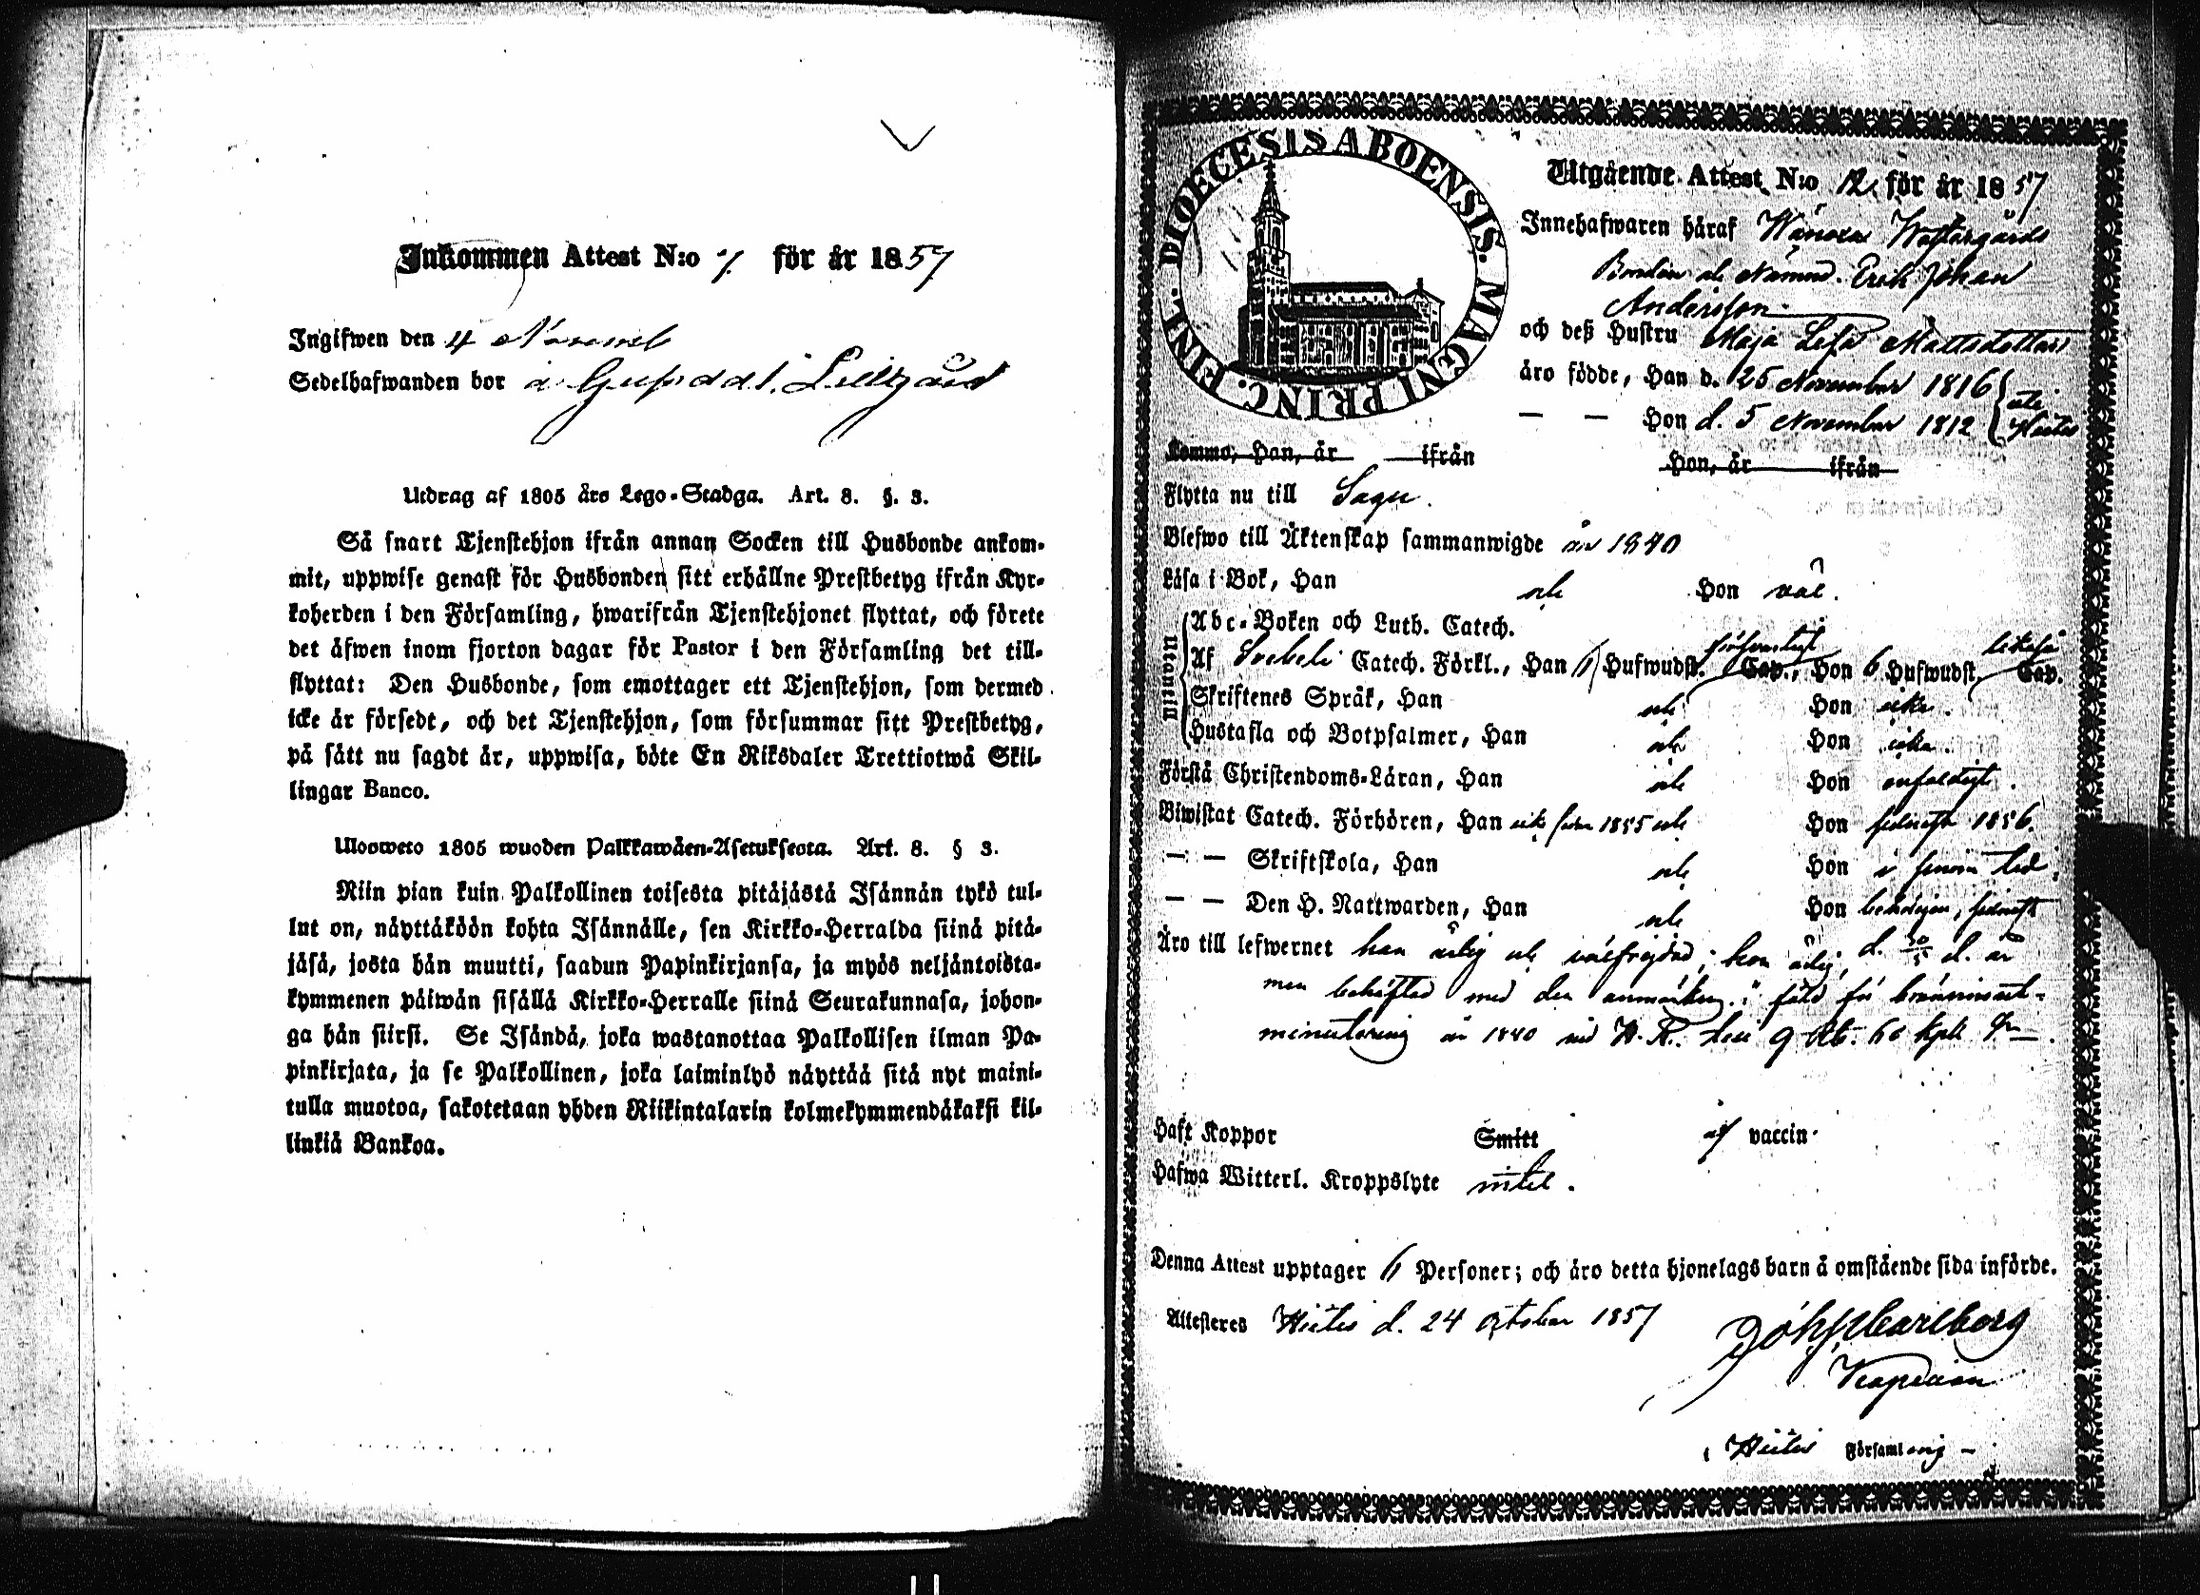 Inkommen Attest N:o 7. för år 1857
Ingifwen den 4 Novemb
Sedelhafwanden bor å Lillgård
Utdrag af 1805 års Lego-Stadga. Art. 8. §. 3.
Så snart Tjenstehjon ifrån annan Socken till Husbonde ankom-
mit, uppwise genast för Husbonden sitt erhållne Prestbetyg ifrån Kyr-
koherden i den Församling, hwarifrån Tjenstehjonet flyttat, och förete
det äfwen inom fjorton dagar för Pastor i den Församling det till-
flyttat: Den Husbonde, som emottager ett Tjenstehjon, som dermed
icke är försedt, och det Tjenstehjon, som försummar sitt Prestbetyg,
på sätt nu sagdt är, uppwisa, böte En Riksdaler Trettiotwå Skil-
lingar Banco.
Ulosweto 1805 wuoden Palkkawäen-Asetuksesta. Art. 8. § 3.
Niin pian kuin Palkollinen toisesta pitäjästä Isännän tykö tul-
lut on, näyttäköön kohta Isännälle, sen Kirkko-Herralda siinä pitä-
jäsä, josta hän muutti, saadun Papinkirjansa, ja myös neljäntoista-
kymmenen päiwän sisällä Kirkko-Herralle siinä Seurakunnasa, johon-
ga hän siirsi. Se Isändä, joka wastanottaa Palkollisen ilman Pa-
pinkirjata, ja se Palkollinen, joka laiminlyö näyttää sitä nyt maini-
tulla muotoa, sakotetaan yhden Riikintalarin kolmekymmendäkaksi kil-
linkiä Bankoa.
DIOECESIS ABOENSIS. MAGNI PRINC. FINL.
Utgående Attest N:o 12 för år 1857
Innehafwaren häraf Wänoxa Westergårds
Bonden och Nämnd. Erik Johan
Andersson
och deß Hustru Maja Lisa Mattsdotter
äro födde, Han d. 25 November 1816
— — Hon d. 5 November 1812 Hitis
Komma, Han, år ifrån Hon, år ifrån
Flytta nu till Sagu.
Blefwo till Äktenskap sammanwigde år 1840
Läsa i Bok, Han och Hon väl.
Utantill
Abc-Boken och Luth. Catech.
Af Svebeli Catech. Förkl., Han 6 Hufwudst. Cap., Hon 6 Hufwudst. likaså Cap.
Skriftenes Språk, Han och Hon icke.
Hustafla och Botpsalmer, Han och Hon icke.
Förstå Christendoms-Läran, Han och Hon enfaldigt.
Biwistat Catech. Förhören, Han icke sedan 1855 och Hon sednast 1856.
— — Skriftskola, Han och Hon i sinom tid;
— — Den H. Nattwarden, Han och Hon behörigen, sednast
Äro till lefwernet han ärlig och välfrejdad; hon ärlig, d. d. år
men behäftad med den anmärkn.: fäld för bränvinsut-
minutering år 1840 vid H. R. till 9 Rb. 60 kop.
Haft Koppor Smitt af vaccin.
Hafwa Witterl. Kroppslyte intet.
Denna Attest upptager 6 Personer; och äro detta hjonelags barn å omstående sida införde.
Attesteres Hitis d. 24 October 1857
Carlborg
Kapellan
i Hitis Församling